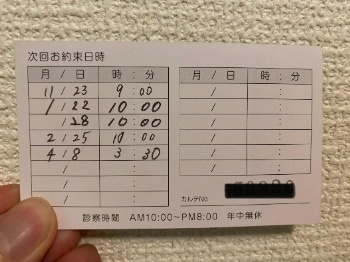 次回お約束日時
月 / 日 時 : 分
11 / 23 9 : 00
1 / 22 10 : 00
/ 28 10 : 00
2 / 25 10 : 00
4 / 8 3 : 30
/ :
/ :
月 / 日 時 : 分
/ :
/ :
/ :
/ :
/ :
カルテNo
診察時間 AM10:00～PM8:00 年中無休